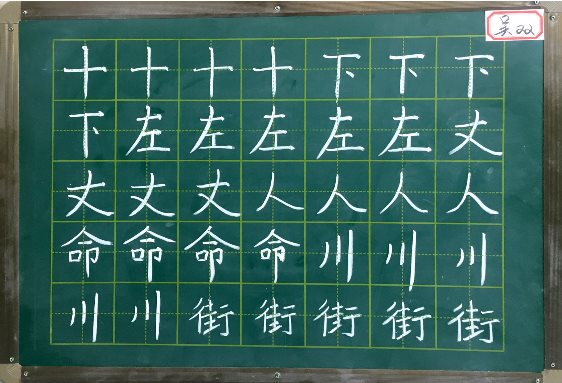 吴双
十十十十下下下
下左左左左左丈
丈丈丈人人人人
命命命命川川川
川川街街街街街